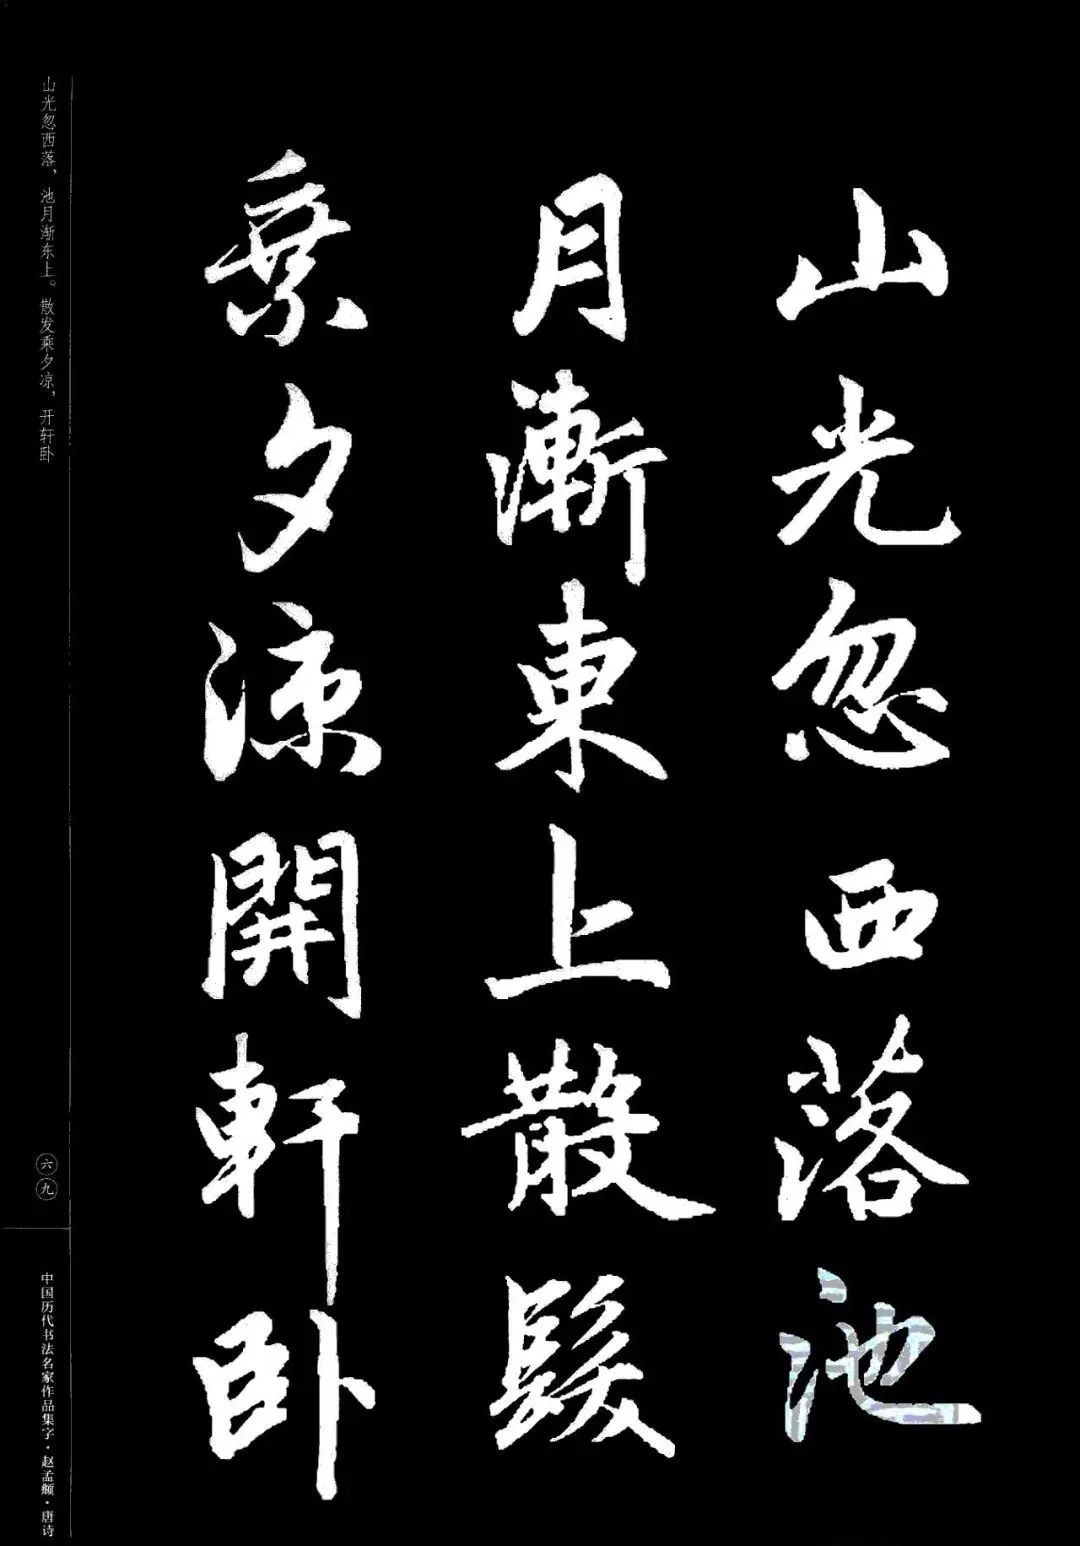 山光忽西落池
月漸東上散髮
乗夕涼開軒臥
山光忽西落，池月渐东上。散发乘夕凉，开轩卧
六九
中国历代书法名家作品集字·赵孟頫·唐诗